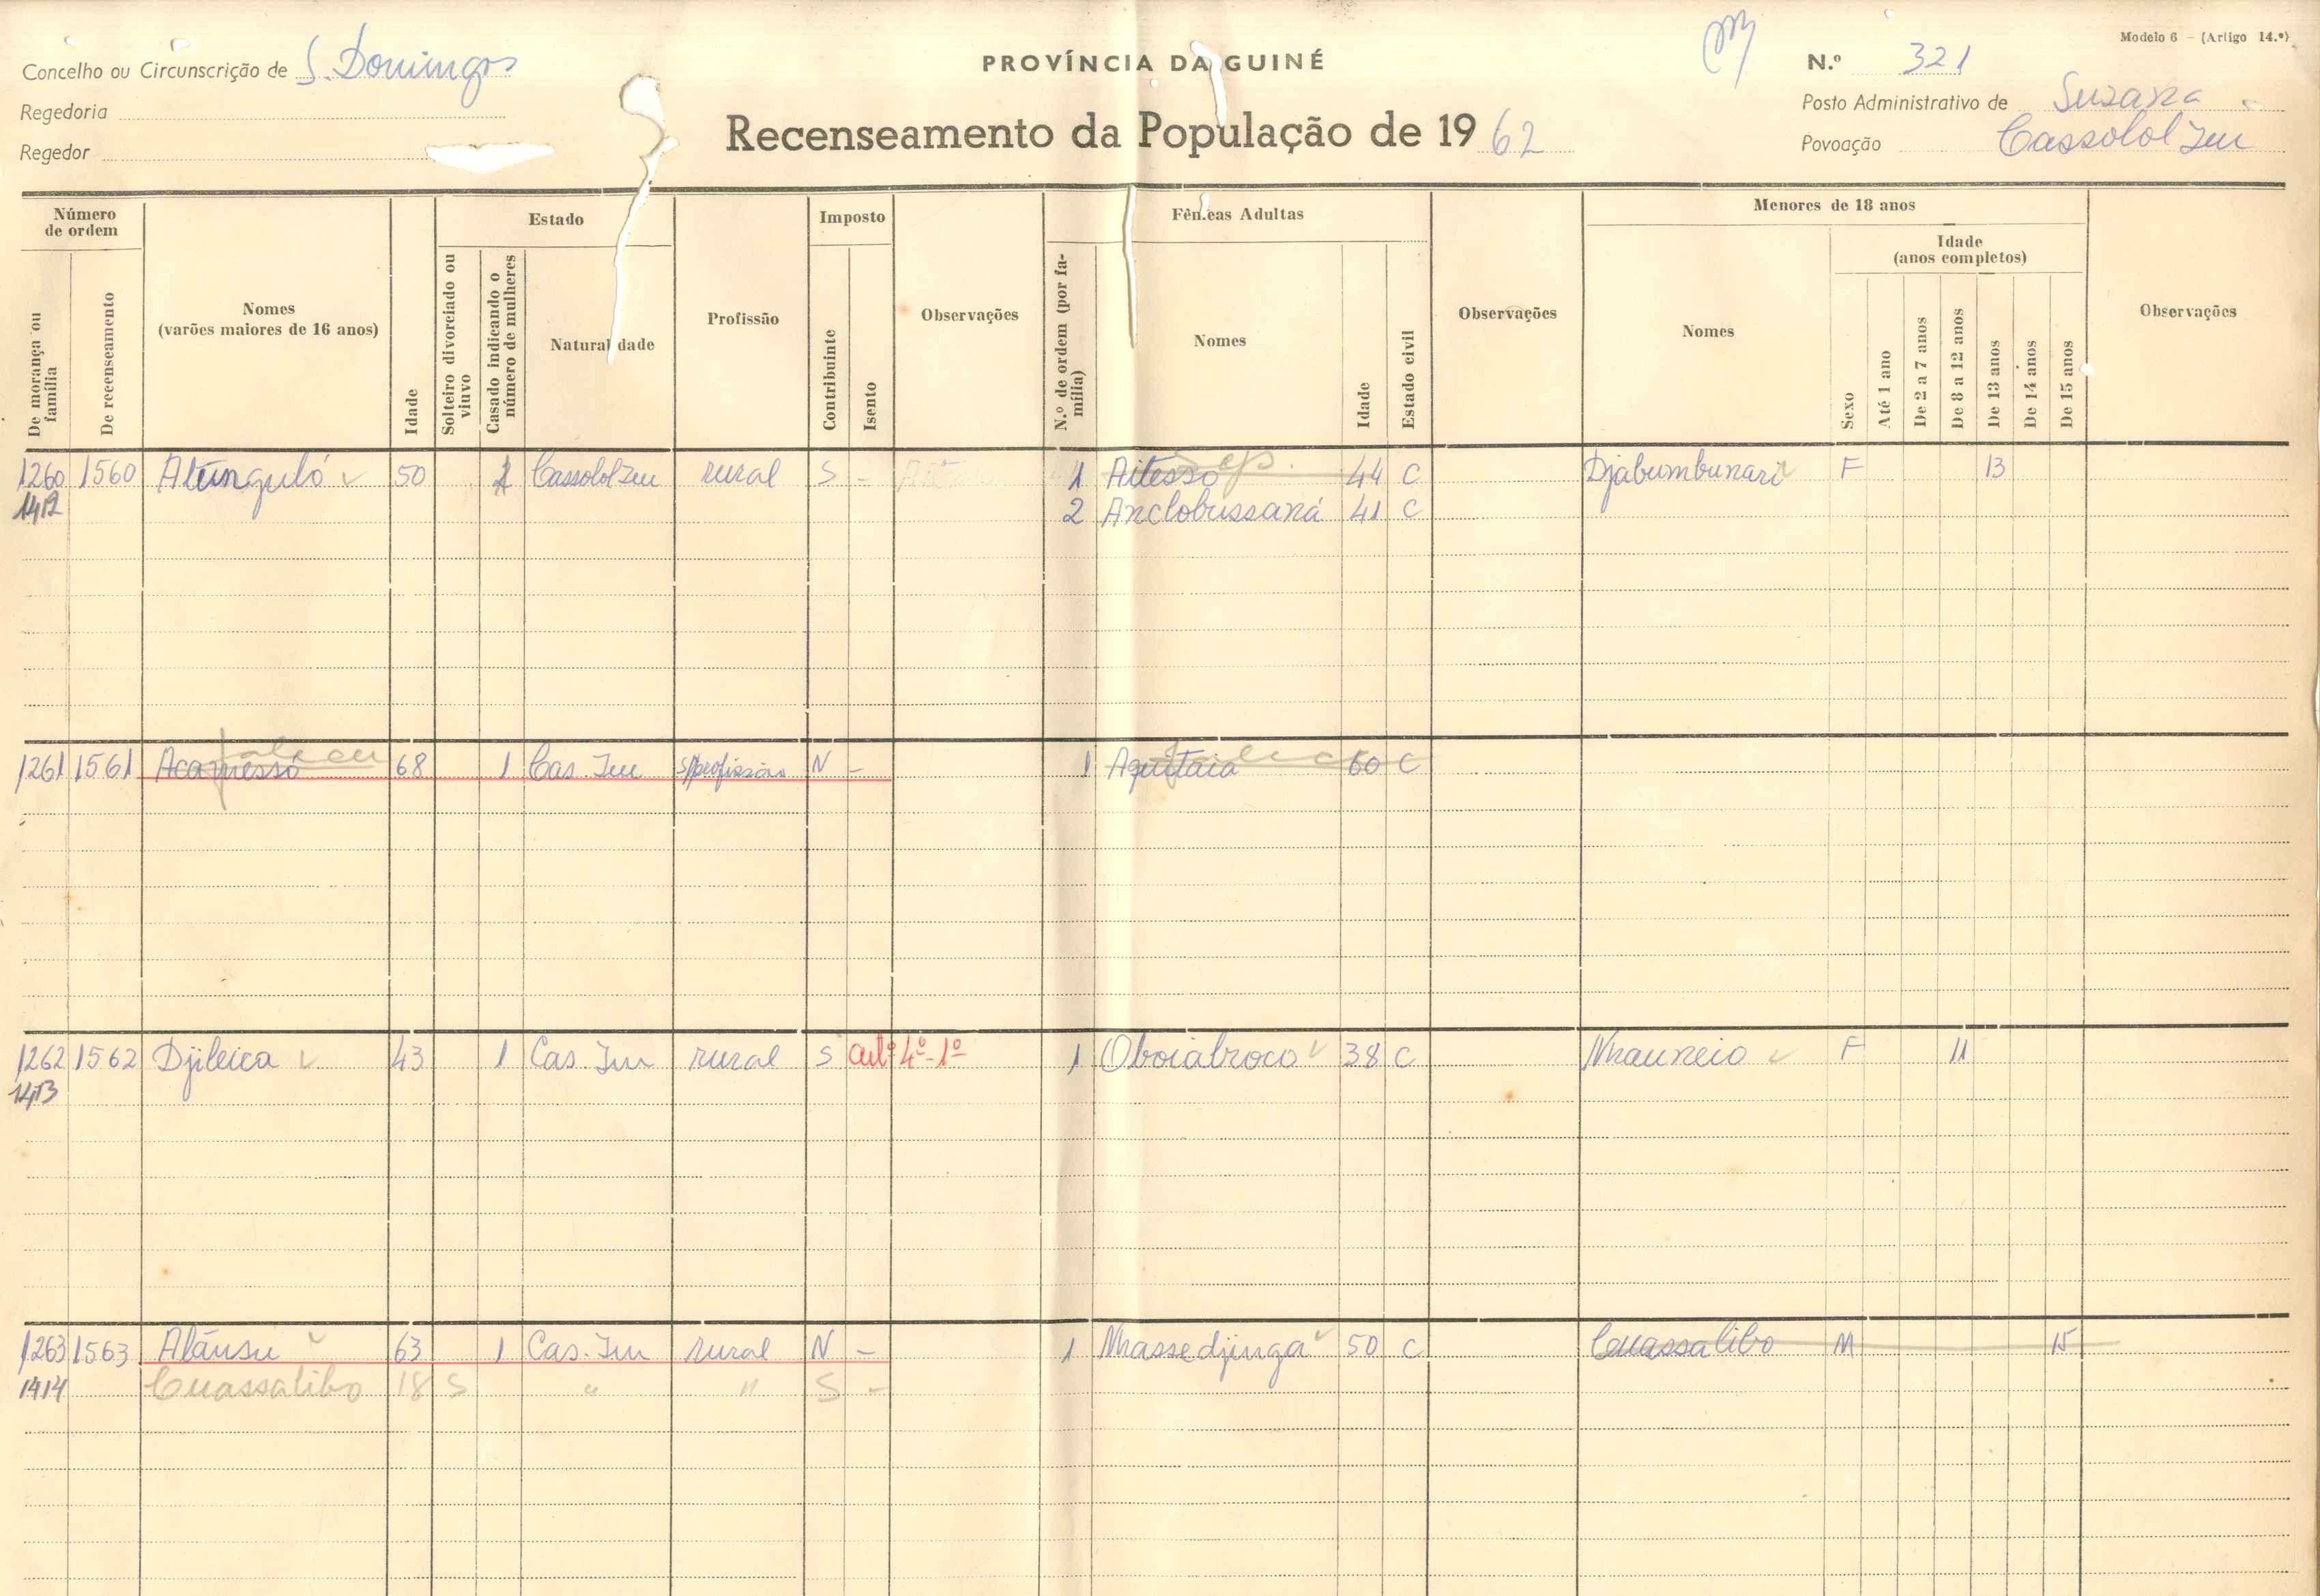 Modelo 6 — (Artigo 14.º)
Concelho ou Circunscrição de S. Domingos
PROVÍNCIA DA GUINÉ
N.º 321
Regedoria
Posto Administrativo de Suzana
Regedor
Recenseamento da População de 1962
Povoação Cassolol Jeu
Número de ordem
Estado
Imposto
Fêmeas Adultas
Menores de 18 anos
De morança ou família
De recenseamento
Nomes (varões maiores de 16 anos)
Idade
Solteiro divorciado ou viuvo
Casado indicando o número de mulheres
Naturalidade
Profissão
Contribuinte
Isento
Observações
N.º de ordem (por família)
Nomes
Idade
Estado civil
Observações
Nomes
Sexo
Idade (anos completos)
Até 1 ano
De 2 a 7 anos
De 8 a 12 anos
De 13 anos
De 14 anos
De 15 anos
Observações
1260 1560 Atunguló 50 Cassolol Jeu rural S - 1 Aitesso 44 C Djabumbunari F 13
1412 2 Anclobussaná 41 C
1261 1561 68 1 Cas. Jeu s/profissão N - 1 Aquitaia 60 C
faleceu
1262 1562 Djileica 43 1 Cas. Jeu rural S artº 4º-1º 1 Oboiabroco 38 C Nhauneio F 11
1413
1263 1563 Alánsu 63 1 Cas. Jeu rural N - 1 Nhassedjinga 50 C Cuassalibo M 15
1414 Cuassalibo 18 S " " S -